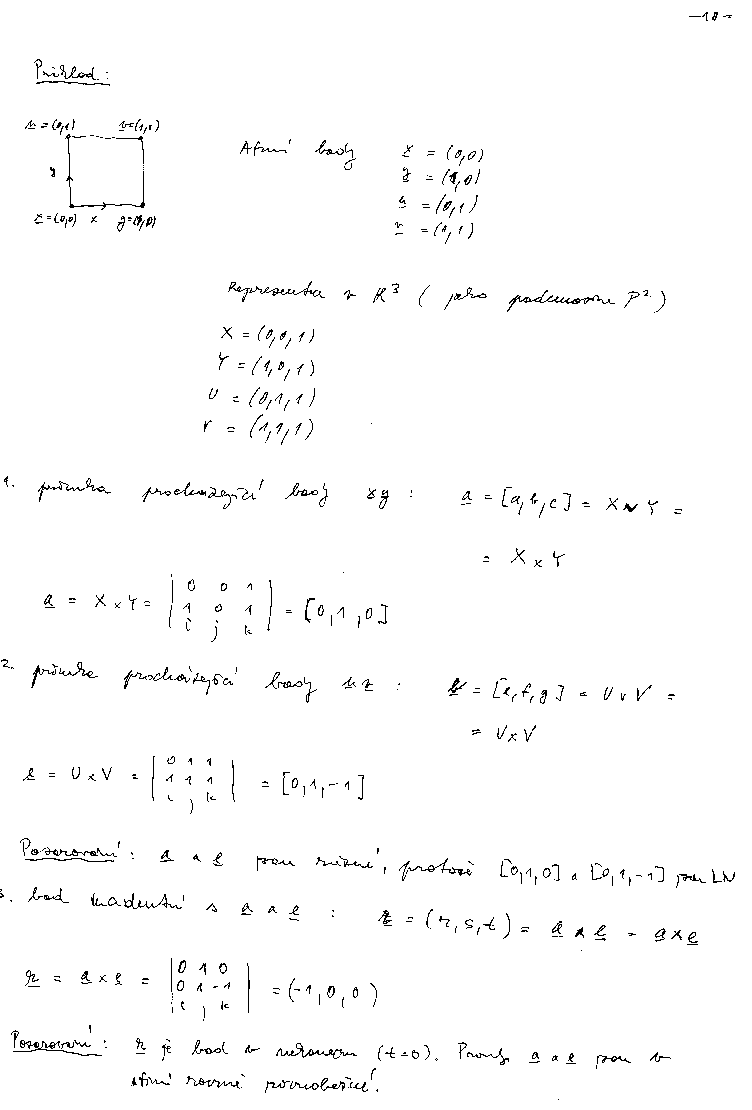 -10-
Příklad:
u = (0,1) v = (1,1)
y
x = (0,0) x y = (1,0)
Afinní body x = (0,0)
y = (1,0)
u = (0,1)
v = (1,1)
Reprezentace v R³ ( jako podmnožina P² )
X = (0,0,1)
Y = (1,0,1)
U = (0,1,1)
V = (1,1,1)
1. přímka procházející body xy : a = [a,b,c] = X ∨ Y =
= X × Y
a = X × Y = | 0 0 1 | = [0,1,0]
1 0 1
i j k
2. přímka procházející body uv : e = [e,f,g] = U ∨ V =
= U × V
e = U × V = | 0 1 1 | = [0,1,-1]
1 1 1
i j k
Pozorování : a a e jsou různé, protože [0,1,0] a [0,1,-1] jsou LN
3. bod incidentní s a a e : r = (r,s,t) = a ∧ e = a×e
r = a × e = | 0 1 0 | = (-1,0,0)
0 1 -1
i j k
Pozorování : r je bod v nekonečnu (t=0). Přímky a a e jsou v
afinní rovině rovnoběžné.